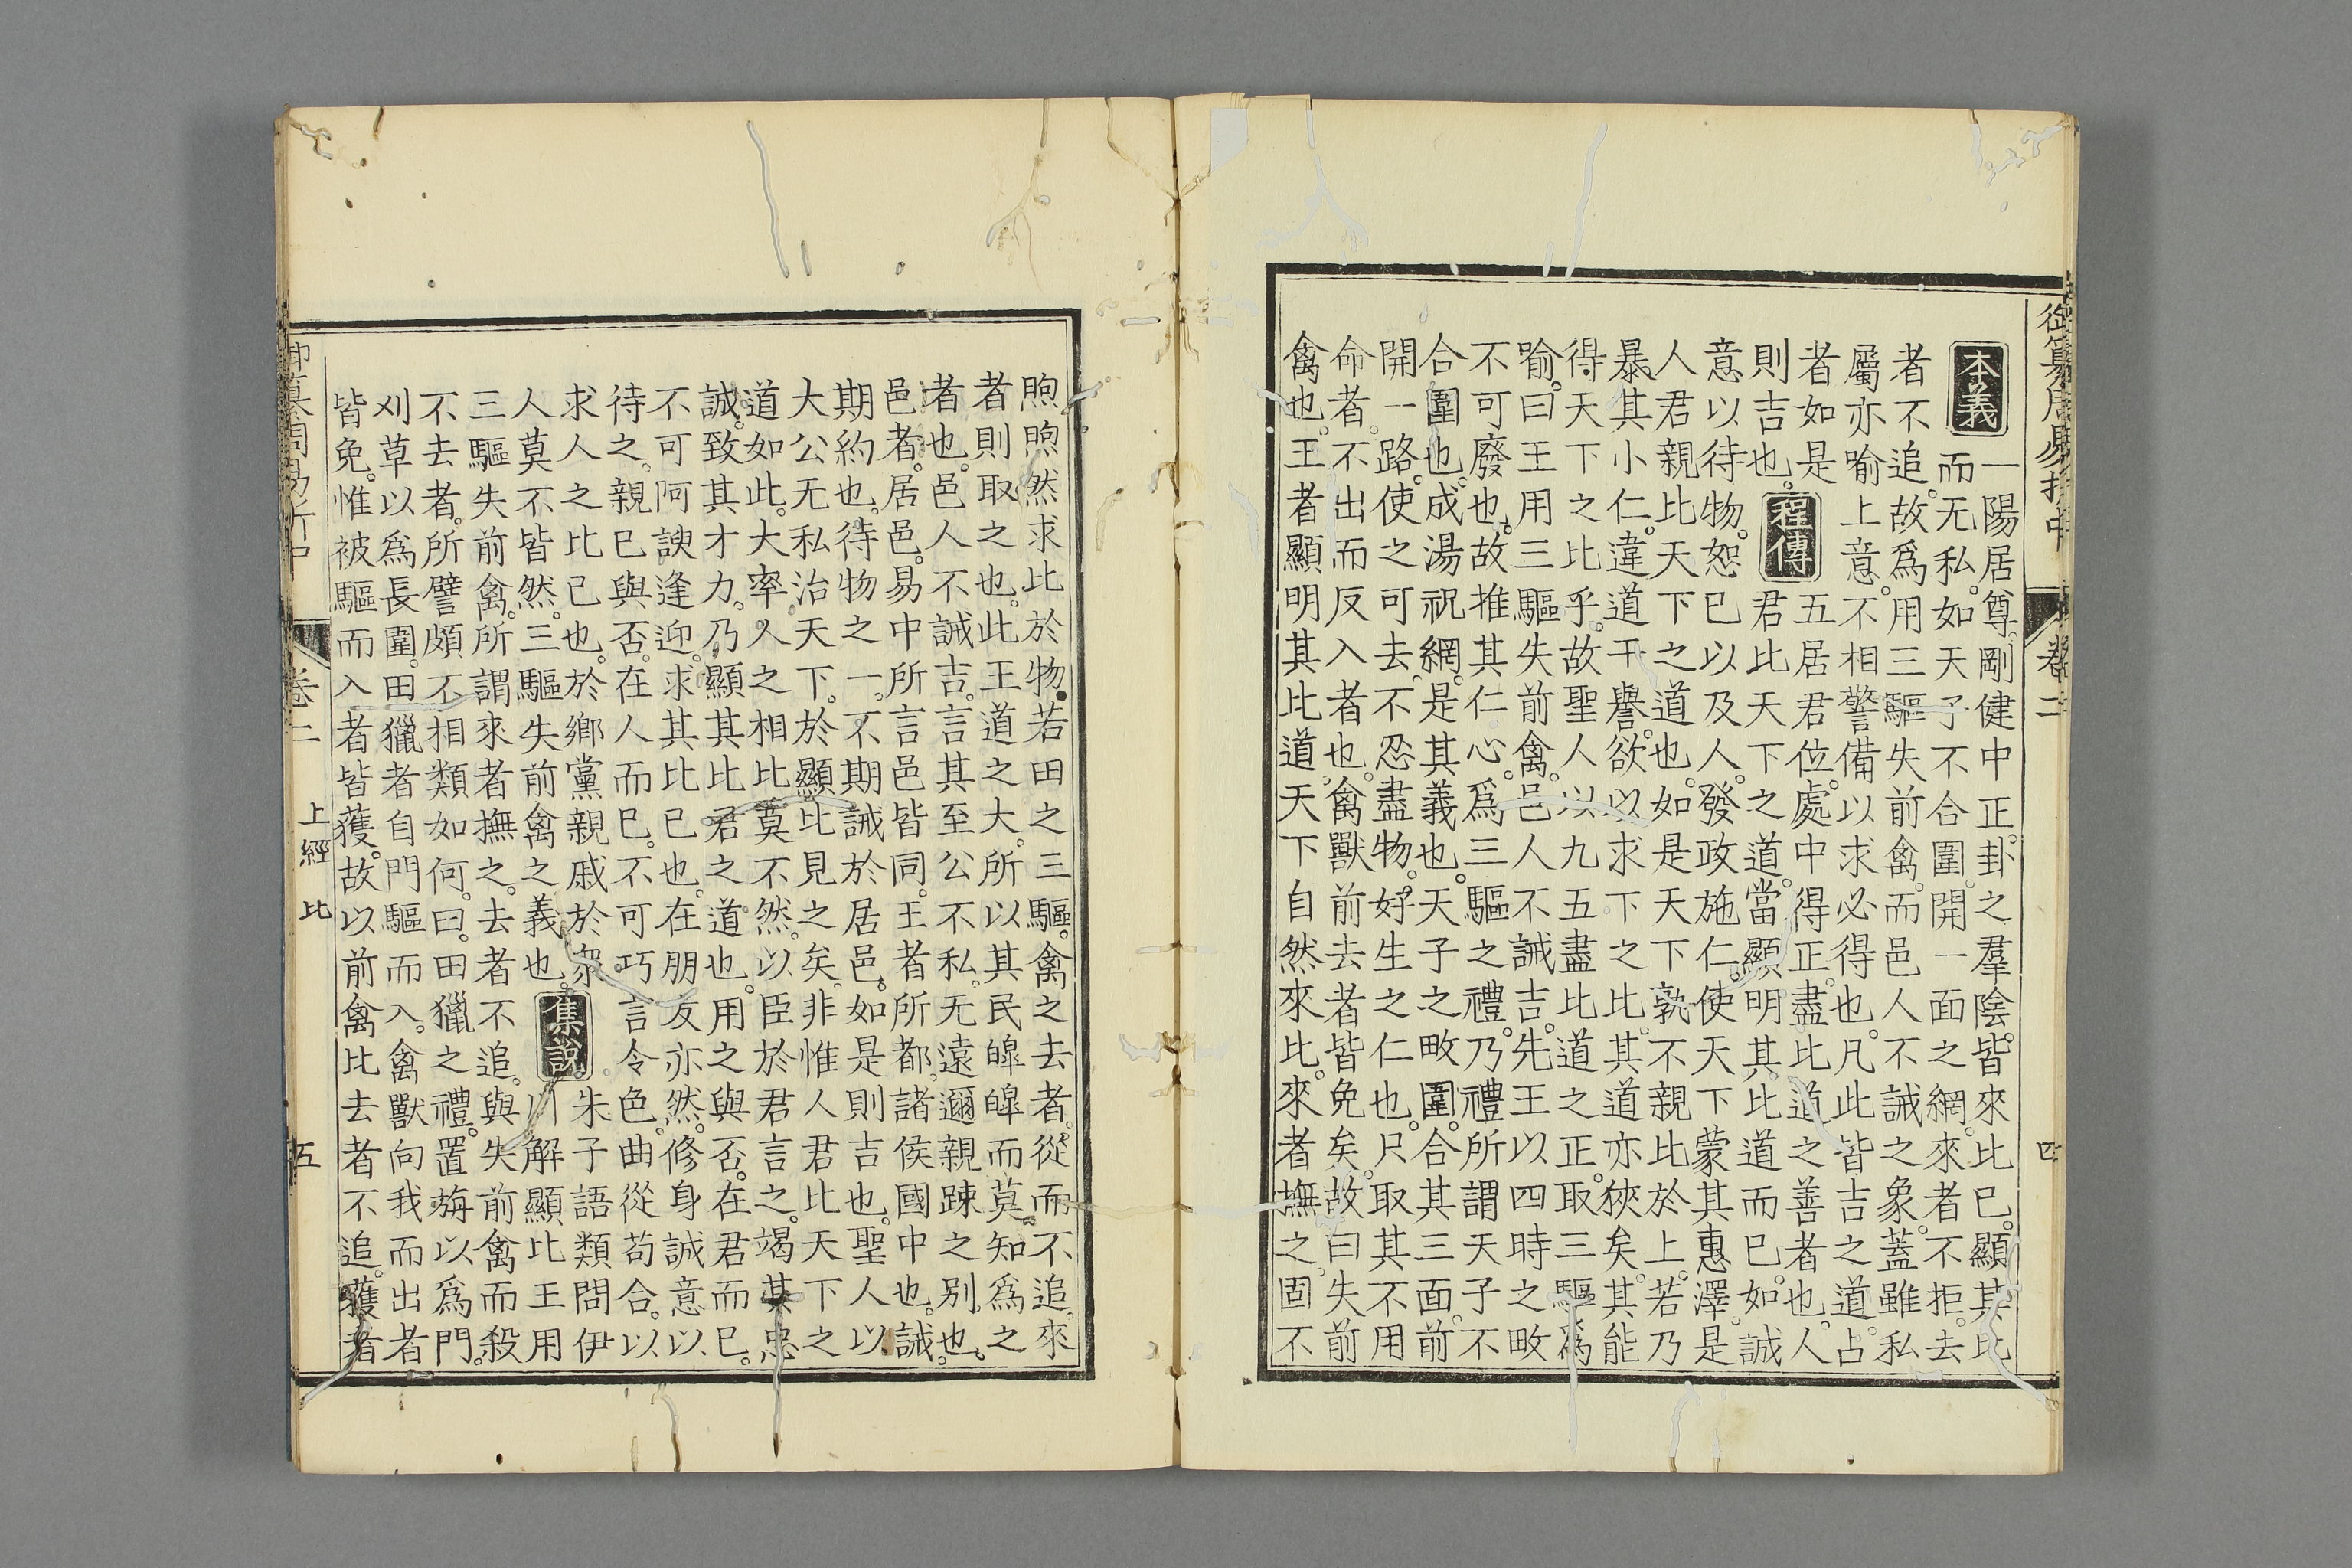 御纂周易折中 卷二 四
本義
一陽居尊。剛健中正。卦之羣陰。皆來比已。顯其比
而无私。如天子不合圍。開一面之網。來者不拒。去
者不追。故爲用三驅失前禽。而邑人不誡之象。蓋雖私
屬亦喻上意。不相警備以求必得也。凡此皆吉之道。占
者如是
則吉也。
程傳
五居君位。處中得正。盡比道之善者也。人
君比天下之道。當顯明其比道而已。如誠
意以待物。恕已以及人。發政施仁。使天下蒙其惠澤。是
人君親比天下之道也。如是天下孰不親比於上。若乃
暴其小仁。違道干譽。欲以求下之比。其道亦狹矣。其能
得天下之比乎。故聖人以九五盡比道之正。取三驅爲
喻。曰王用三驅失前禽。邑人不誡吉。先王以四時之畋
不可廢也。故推其仁心。爲三驅之禮。乃禮所謂天子不
合圍也。成湯祝網。是其義也。天子之畋圍。合其三面。前
開一路。使之可去。不忍盡物。好生之仁也。只取其不用
命者。不出而反入者也。禽獸前去者皆免矣。故曰失前
禽也。王者顯明其比道。天下自然來比。來者撫之。固不
煦煦然求比於物。若田之三驅。禽之去者。從而不追。來
者則取之也。此王道之大。所以其民皥皥而莫知爲之
者也。邑人不誡吉。言其至公不私。无遠邇親踈之别也。
邑者。居邑。易中所言邑皆同。王者所都。諸侯國中也。誡。
期約也。待物之一。不期誡於居邑。如是則吉也。聖人以
大公无私治天下。於顯比見之矣。非惟人君比天下之
道如此。大率人之相比莫不然。以臣於君言之。竭其忠
誠。致其才力。乃顯其比君之道也。用之與否。在君而已。
不可阿諛逢迎。求其比已也。在朋友亦然。修身誠意以
待之。親已與否。在人而已。不可巧言令色。曲從苟合。以
求人之比已也。於鄉黨親戚於衆
人莫不皆然。三驅失前禽之義也。
集說
朱子語類問伊
川解顯比王用
三驅失前禽。所謂來者撫之。去者不追。與失前禽而殺
不去者。所譬頗不相類如何。曰。田獵之禮。置旃以爲門。
刈草以爲長圍。田獵者自門驅而入。禽獸向我而出者
皆免。惟被驅而入者皆獲。故以前禽比去者不追。獲者
御纂周易折中 卷二 上經 比 五